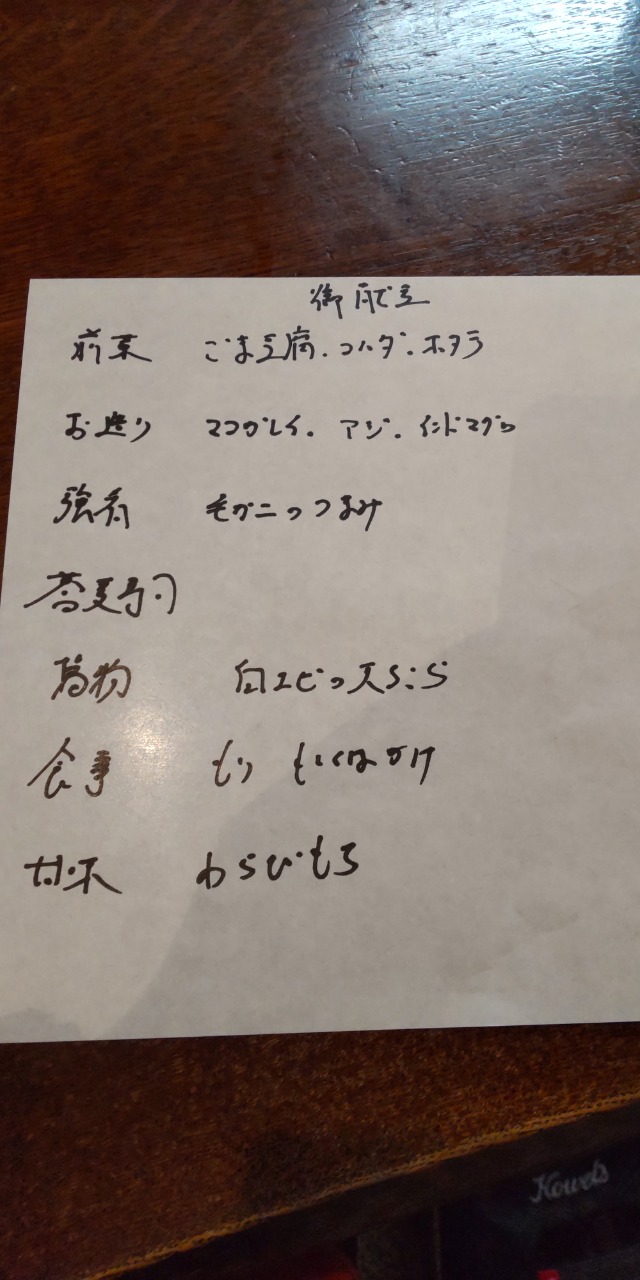 御献立
前菜 ごま豆腐.コハダ.ホタテ
お造り マコガレイ.アジ.インドマグロ
強肴 毛ガニのつまみ
蕎麦寿司
揚物 白エビの天ぷら
食事 もり もしくはかけ
甘味 わらびもち